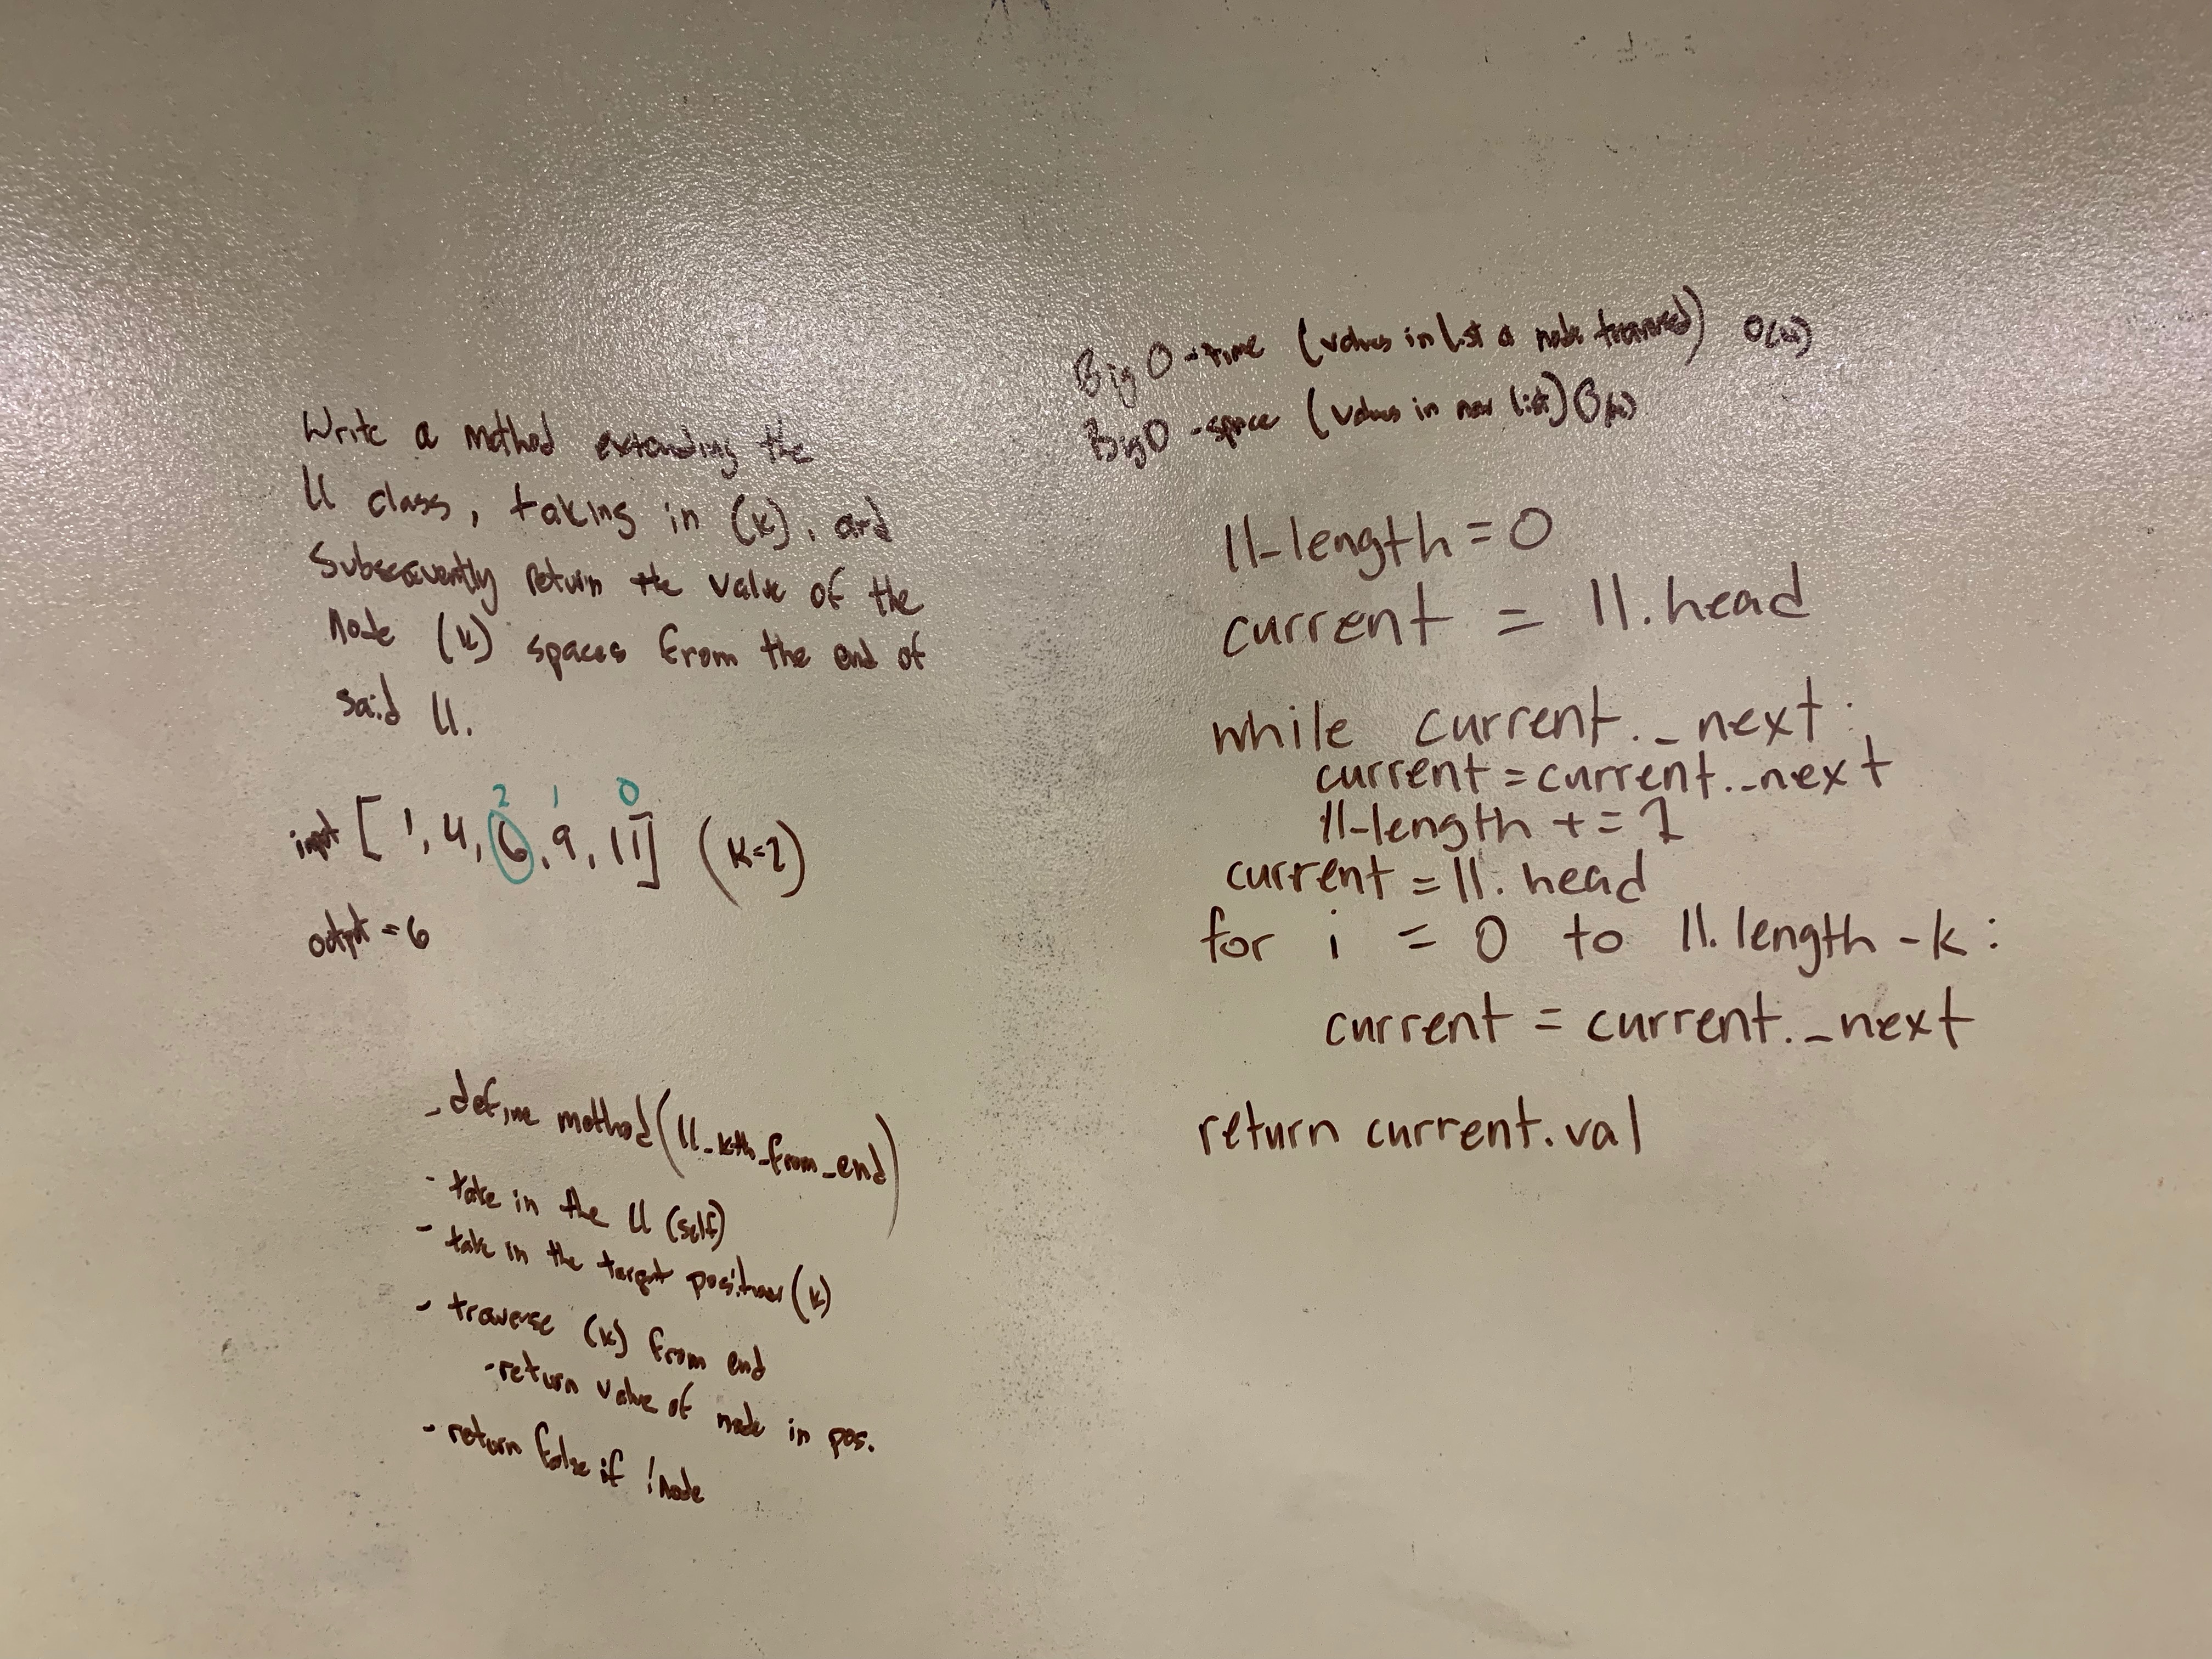 Write a method extending the
ll class, taking in (k), and
Subsequently return the value of the
node (k) spaces from the end of
said ll.
2 1 0
input [1, 4, 6, 9, 11] (k=2)
output = 6
- define method (ll_kth_from_end)
- take in the ll (self)
- take in the target position (k)
- traverse (k) from end
- return value of node in pos.
- return false if !node
Big O - time (values in list a node traversed) O(n)
Big O - space (values in new list) O(n)
ll-length = 0
current = ll.head
while current._next:
current = current._next
ll-length += 1
current = ll.head
for i = 0 to ll.length - k:
current = current._next
return current.val